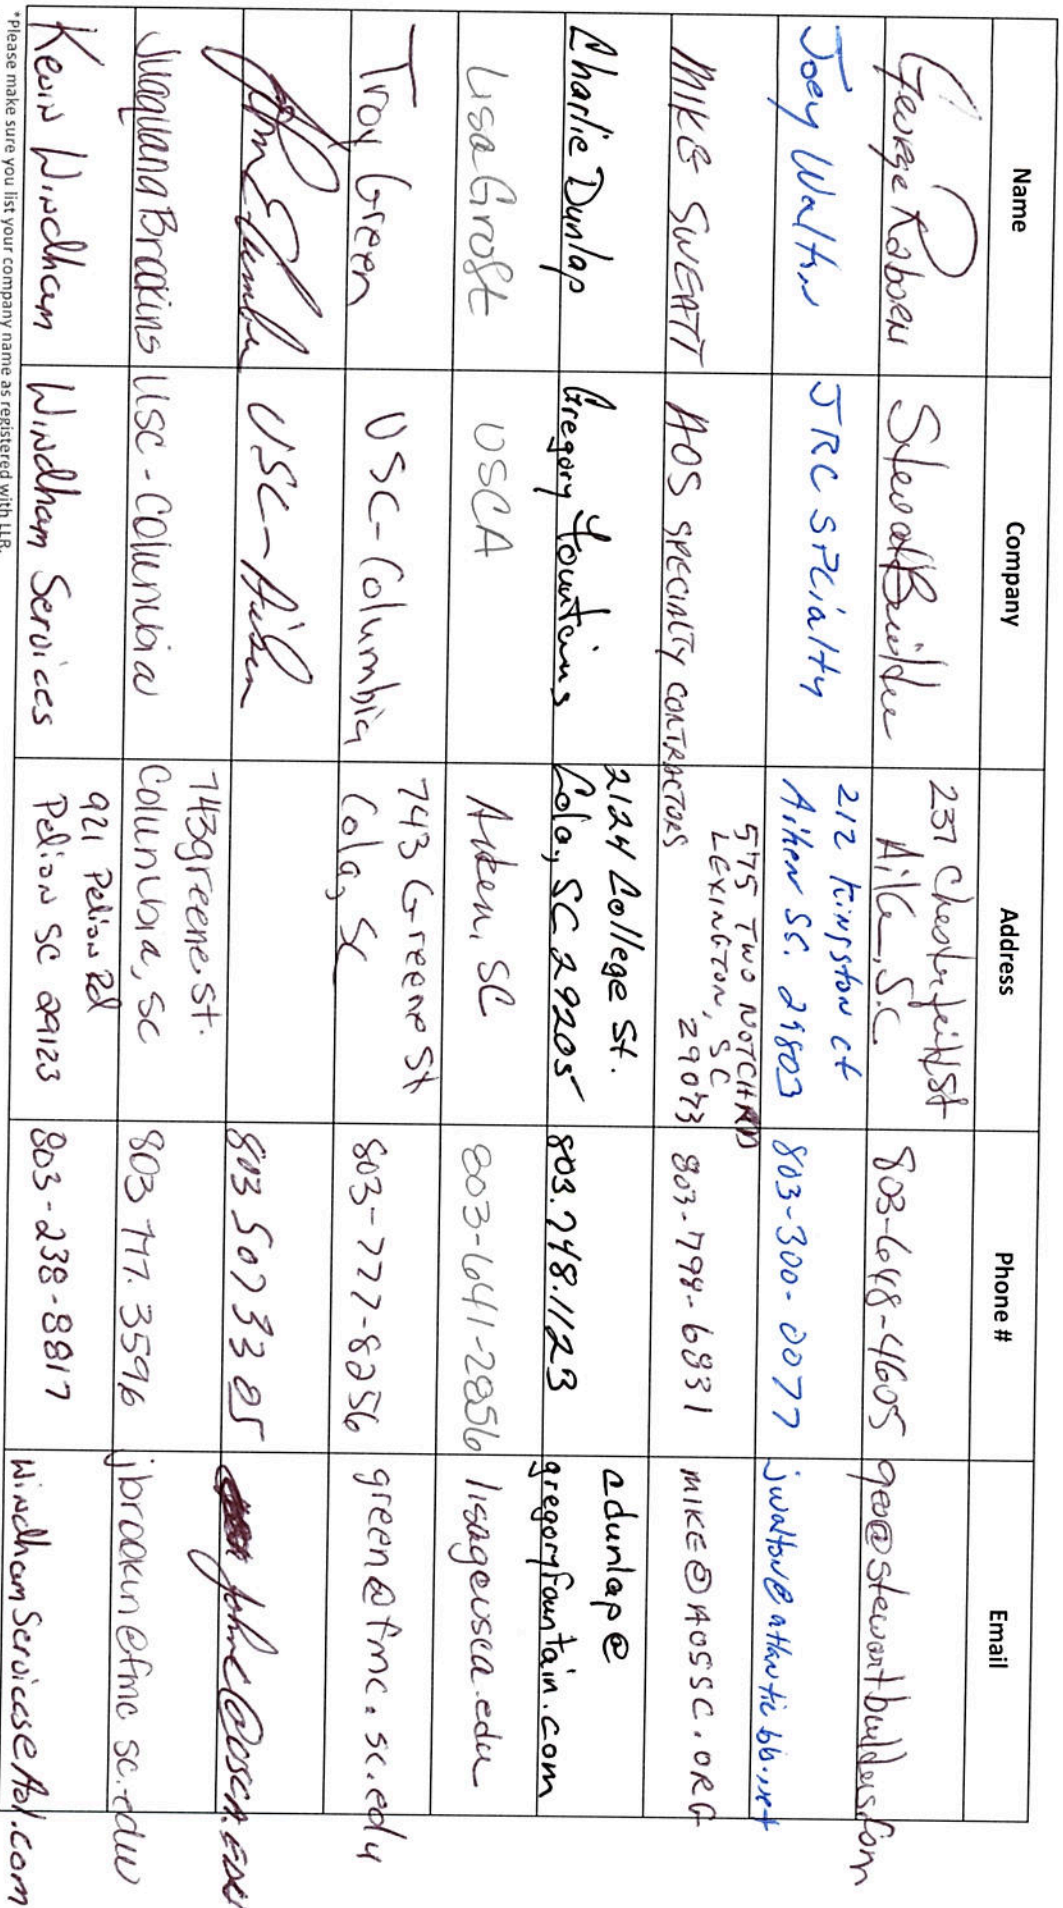 Name Company Address Phone # Email
George Raborn Stewart Builders 237 Chesterfield St
Aiken, S.C. 803-648-4605 geo@stewartbuilders.com
Joey Walton JRC SPecialty 212 Kingston ct
Aiken SC. 29803 803-300-0077 jwalton@atlanticbb.net
MIKE SWEATT AOS SPECIALTY CONTRACTORS 575 TWO NOTCH RD
LEXINGTON, SC
29073 803-798-6831 MIKE@AOSSC.ORG
Charlie Dunlap Gregory Fountains 2124 College St.
Cola, SC 29205 803.748.1123 cdunlap@
gregoryfountain.com
Lisa Groft USCA Aiken, SC 803-641-2856 lisag@usca.edu
Troy Green USC-Columbia 743 Greene St
Cola, SC 803-777-8256 green@fmc.sc.edu
John USC-Aiken 803 507 3305 johnc@usca.edu
Juaquana Brookins USC-Columbia 743 greene st.
Columbia, SC 803 777.3596 jbrookin@fmc.sc.edu
Kevin Windham Windham Services 921 Pelion Rd
Pelion SC 29123 803-238-8817 WindhamServices@Aol.com
*Please make sure you list your company name as registered with LLR.